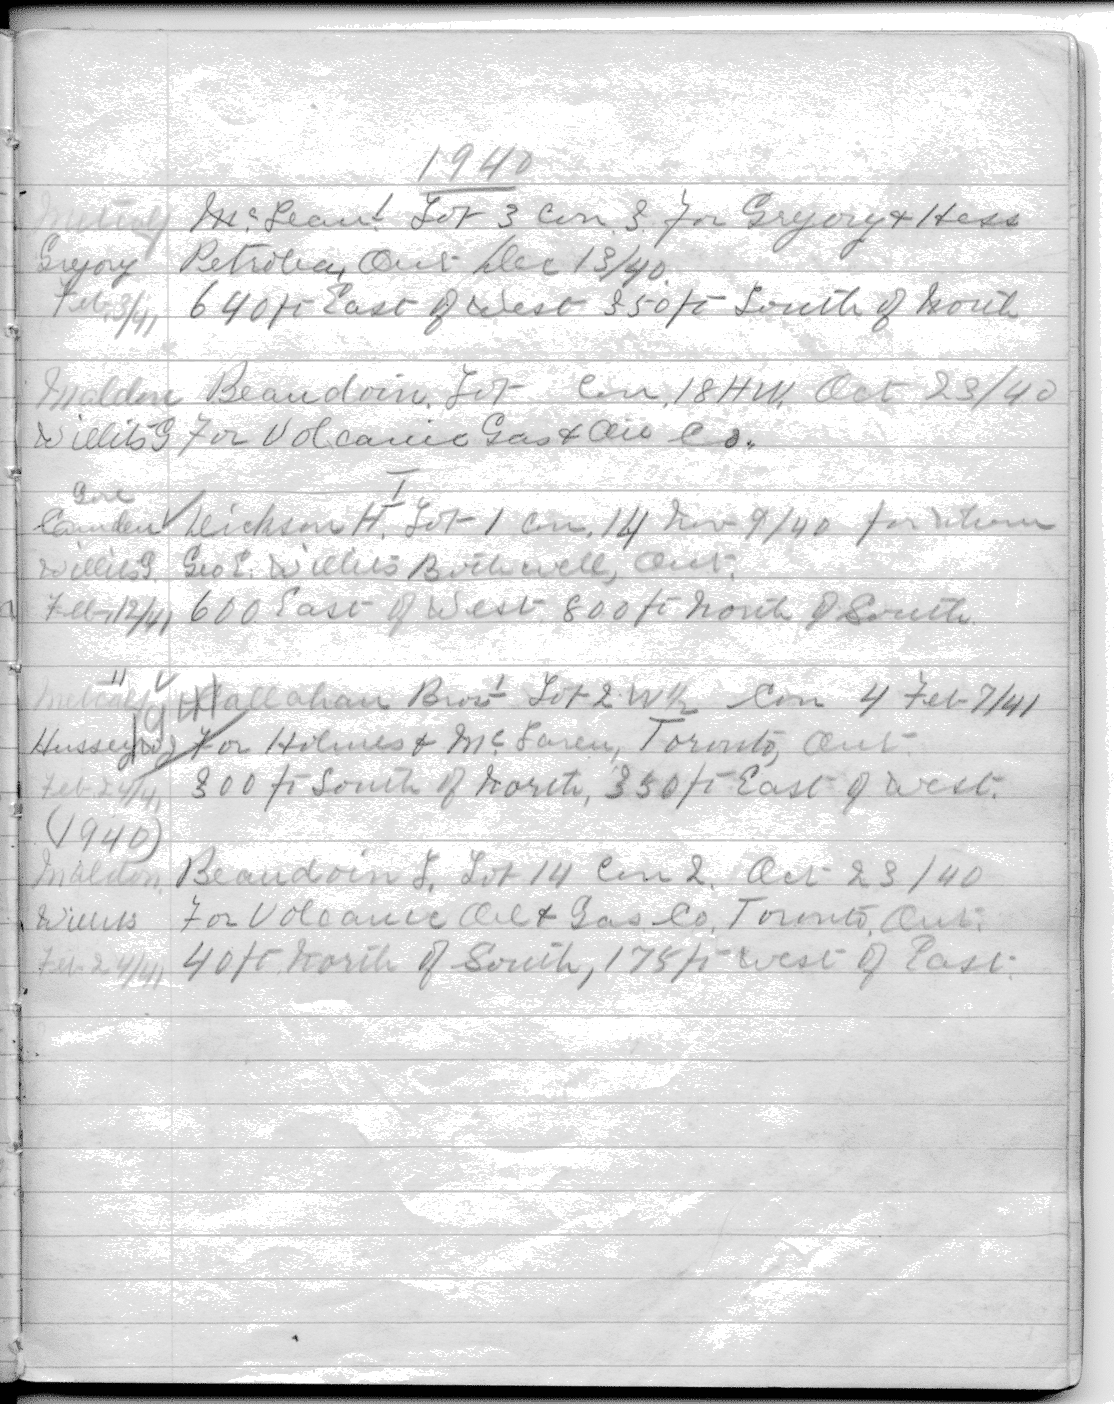 1940
Metcalf McLean #1 Lot 3 Con. 3. For Gregory & Hess
Gregory Petrolia, Ont Dec 13/40.
Feb. 3/41 640 ft East of West 350 ft South of North
Maldon Beaudoin, Lot Con. 18 Oct 23/40
Willits G For Volcanic Gas & Oil Co.
Gore
Camden Dickson H. I Lot 1 Con. 14 Nov 9/40 for whom
Willits G. Geo E. Willits Bothwell, Ont.
Feb. 12/41 600 East of West 800 ft North of South
Metcalf Callahan Bros 1 Lot 2 W½ Con 4 Feb 7/41
Hussey For Holmes & McLaren, Toronto, Ont
Feb 24/41 300 ft South of North, 350 ft East of West.
(1940)
Maldon. Beaudoin J. Lot 14 Con 2. Oct 23/40
Willits For Volcanic Oil & Gas Co. Toronto, Ont.
Feb 24/41 40 ft North of South, 175 ft West of East.